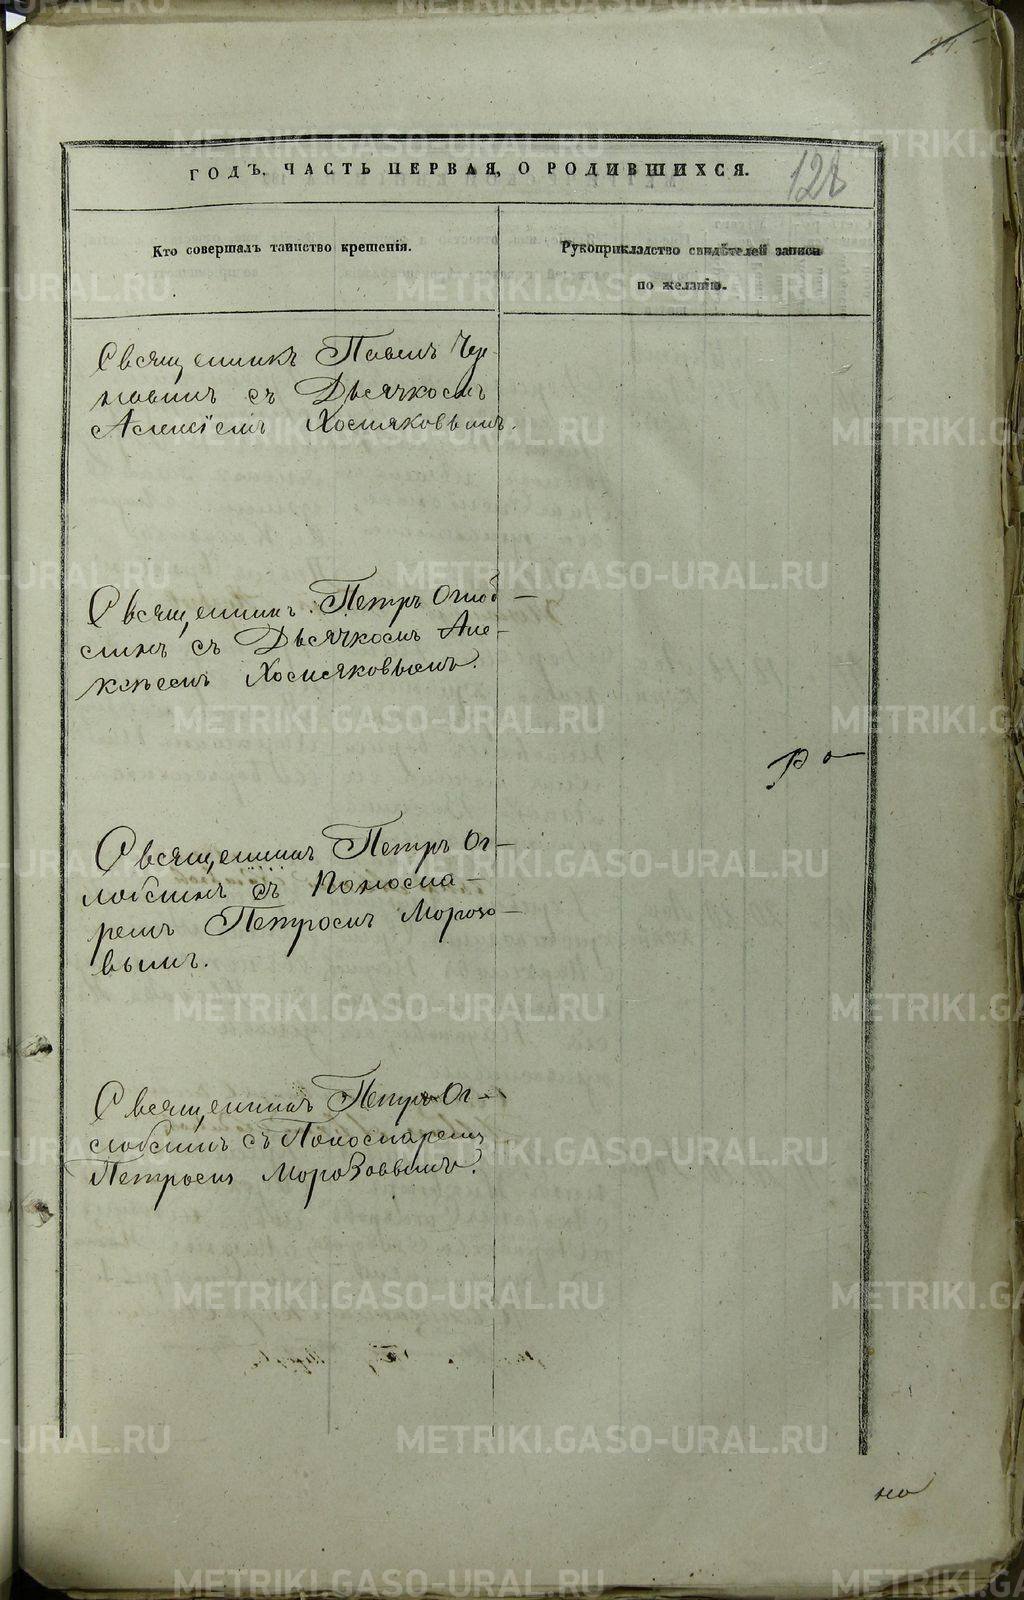 ГОДЪ. ЧАСТЬ ПЕРВАЯ, О РОДИВШИХСЯ.
128
Кто совершалъ таинство крещенія.
Рукоприкладство свидѣтелей записи
по желанію.
Священникъ Павелъ Чер-
навинъ съ Дьячкомъ
Алексіемъ Хомяковымъ.
Священникъ Петръ Оглоб-
линъ съ Дьячкомъ Але-
ксѣемъ Хомяковымъ.
Священникъ Петръ Ог-
лоблинъ съ Пономаремъ
ремъ Петромъ Морозо-
вымъ.
Священникъ Петръ Ог-
лоблинъ съ Пономаремъ
Петромъ Морозовымъ.
ро-
но
METRIKI.GASO-URAL.RU